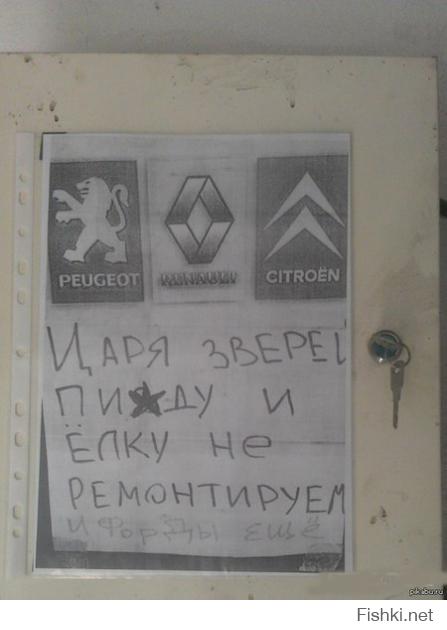 PEUGEOT RENAULT CITROËN
ЦАРЯ ЗВЕРЕЙ
ПИ★ДУ И
ЁЛКУ НЕ
РЕМОНТИРУЕМ
И ФОРДЫ ЕЩЁ
pikabu.ru
Fishki.net